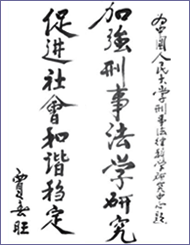 为中国人民大学刑事法律科学研究中心题
加強刑事法学研究
促进社會和谐稳定
賈春旺